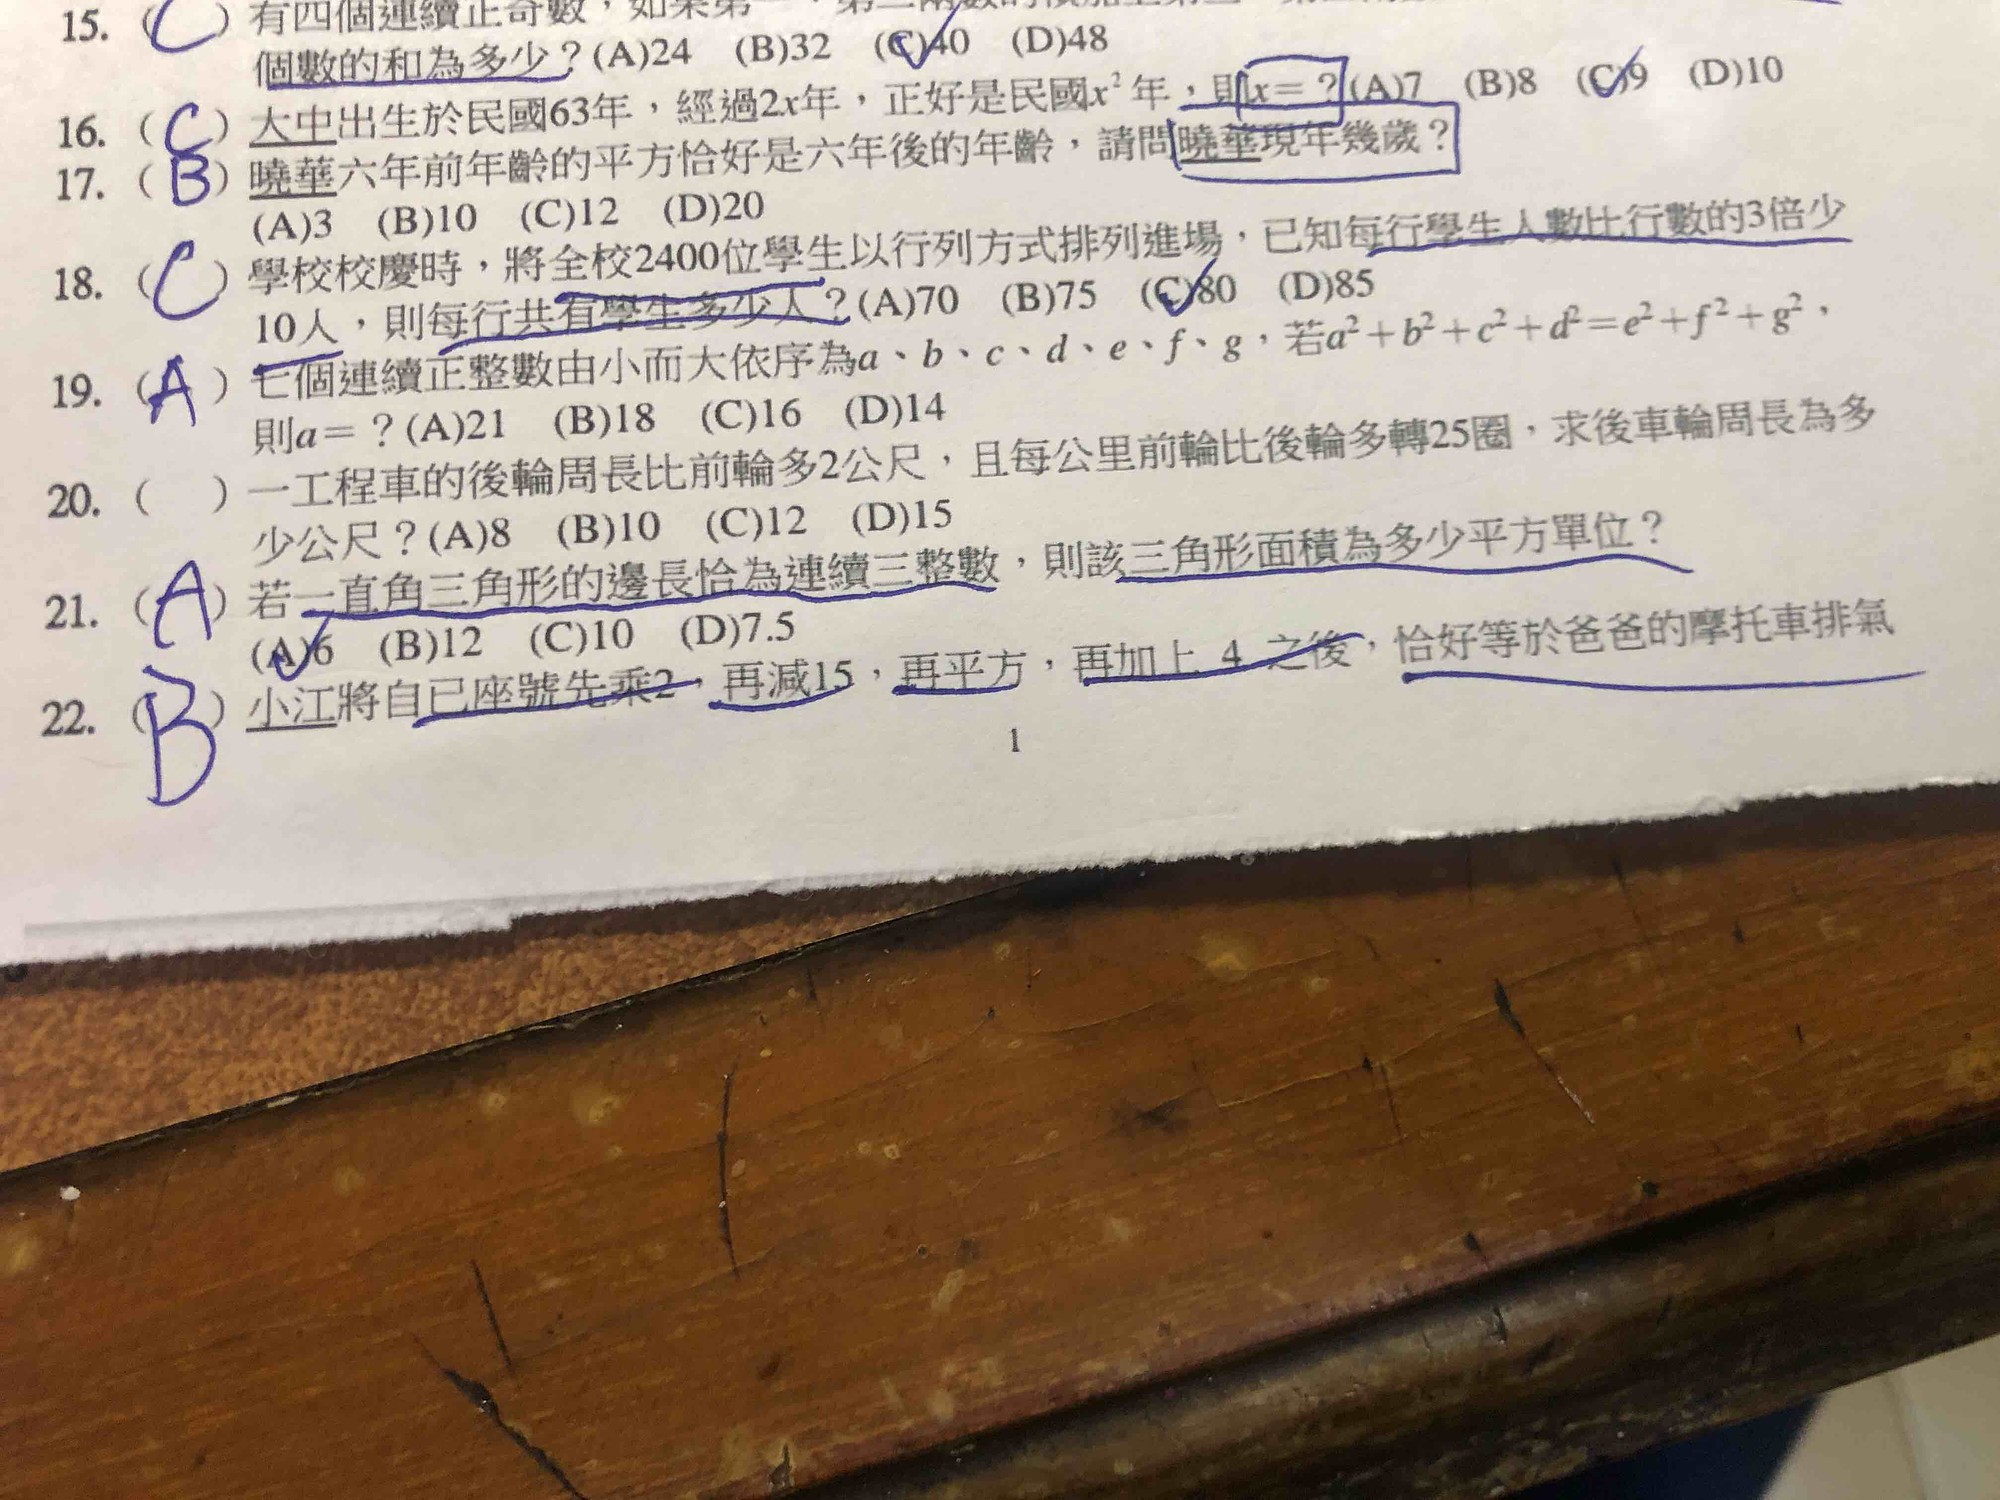 15. (C) 有四個連續正奇數，如果第一、第二兩數的積加上第三、第四
個數的和為多少？(A)24 (B)32 (C)40 (D)48
16. (C) 大中出生於民國63年，經過2x年，正好是民國x²年，則x=？(A)7 (B)8 (C)9 (D)10
17. (B) 曉華六年前年齡的平方恰好是六年後的年齡，請問曉華現年幾歲？
(A)3 (B)10 (C)12 (D)20
18. (C) 學校校慶時，將全校2400位學生以行列方式排列進場，已知每行學生人數比行數的3倍少
10人，則每行共有學生多少人？(A)70 (B)75 (C)80 (D)85
19. (A) 七個連續正整數由小而大依序為a、b、c、d、e、f、g，若a²+b²+c²+d²=e²+f²+g²，
則a=？(A)21 (B)18 (C)16 (D)14
20. ( ) 一工程車的後輪周長比前輪多2公尺，且每公里前輪比後輪多轉25圈，求後車輪周長為多
少公尺？(A)8 (B)10 (C)12 (D)15
21. (A) 若一直角三角形的邊長恰為連續三整數，則該三角形面積為多少平方單位？
(A)6 (B)12 (C)10 (D)7.5
22. (B) 小江將自己座號先乘2，再減15，再平方，再加上 4 之後，恰好等於爸爸的摩托車排氣
1